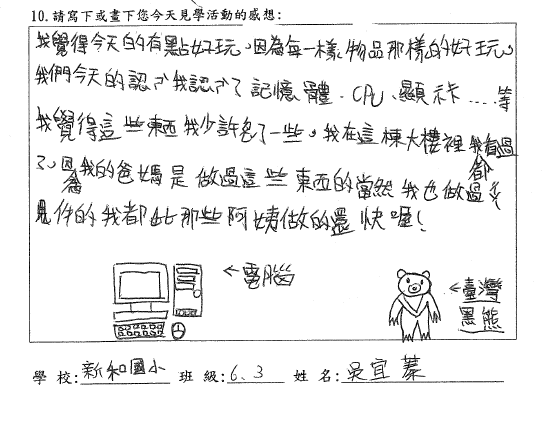 10.請寫下或畫下您今天見學活動的感想:
我覺得今天的有點好玩。因為每一樣物品那樣的好玩。
我們今天的認分我認分了記憶體、CPU、顯示卡....等
我覺得這些東西我少許多了一些。我在這棟大樓裡我都看過
了、因為我的爸媽是做過這些東西的當然我也做過
件的我都比那些阿姨做的還快喔!
←電腦
←臺灣
黑熊
學 校:新和國小 班 級:6.3 姓 名:吳宜蓁